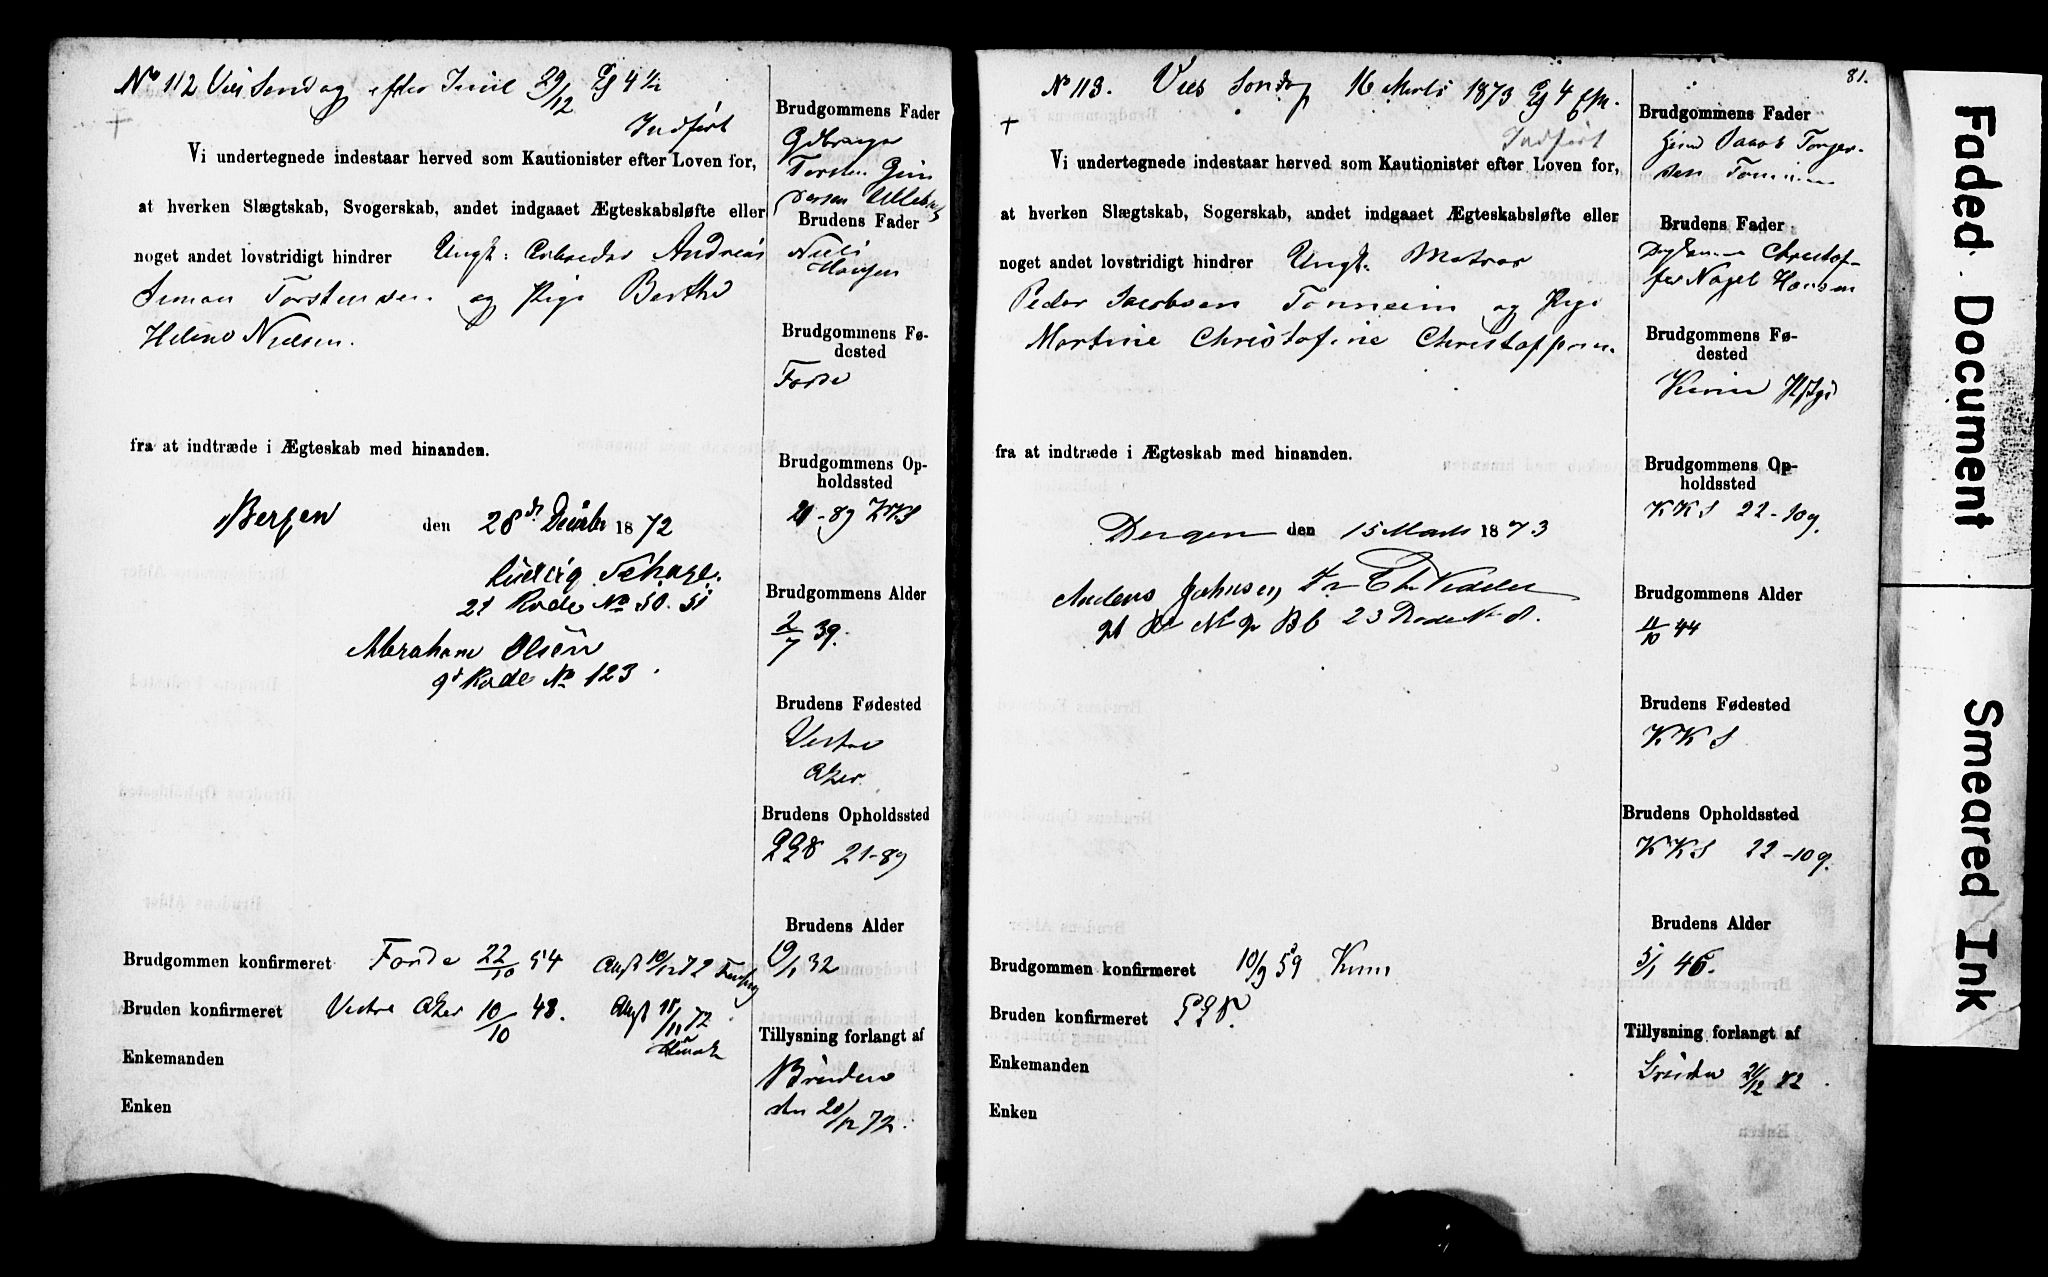 No 112 Vies Søndag efter Juul 29/12 Kl 4 1/2
Indført
Vi undertegnede indestaar herved som Kautionister efter Loven for,
at hverken Slægtskab, Svogerskab, andet indgaaet Ægteskabsløfte eller
noget andet lovstridigt hindrer Ungk: Arbeider Andreas
Simon Torstensen og Pige Berthe
Helene Nielsen.
fra at indtræde i Ægteskab med hinanden.
Bergen den 28de Decebr 1872
Ludvig
21 Rode No 50. 51
Abraham Olsen
9d Rode No 123.
Brudgommen konfirmeret Førde 22/10 54
Bruden konfirmeret Vestre Aker 10/10 48.
Enkemanden
Enken
Brudgommens Fader
Gdbruger
Torsten
Brudens Fader
Niels
Hansen
Brudgommens Fø-
dested
Førde
Brudgommens Op-
holdssted
21-89 KKS
Brudgommens Alder
2/7 39.
Brudens Fødested
Vestre
Aker
Brudens Opholdssted
21-89
Brudens Alder
19/1 32
Tillysning forlangt af
Bruden
den 20/12 72.
81.
No 113. Vies Søndag 16 Marts 1873 Kl 4 Efm.
Indført
Vi undertegnede indestaar herved som Kautionister efter Loven for,
at hverken Slægtskab, Sogerskab, andet indgaaet Ægteskabsløfte eller
noget andet lovstridigt hindrer Ungk: Matros
Peder Jacobsen Tonheim og Pige
Martine Christofine Christoffersen.
fra at indtræde i Ægteskab med hinanden.
Bergen den 15 Marts 1873
Anders Johnsen
23 Rode No 8.
Brudgommen konfirmeret 10/9 59 Kinn
Bruden konfirmeret
Enkemanden
Enken
Brudgommens Fader
Jacob Torger-
sen
Brudens Fader
Christof-
fer Nagel Hansen
Brudgommens Fø-
dested
Kinn
Brudgommens Op-
holdssted
KKS 22-109.
Brudgommens Alder
11/10 44
Brudens Fødested
KKS
Brudens Opholdssted
KKS 22-109.
Brudens Alder
5/1 46.
Tillysning forlangt af
Bruden
Faded Document
Smeared Ink